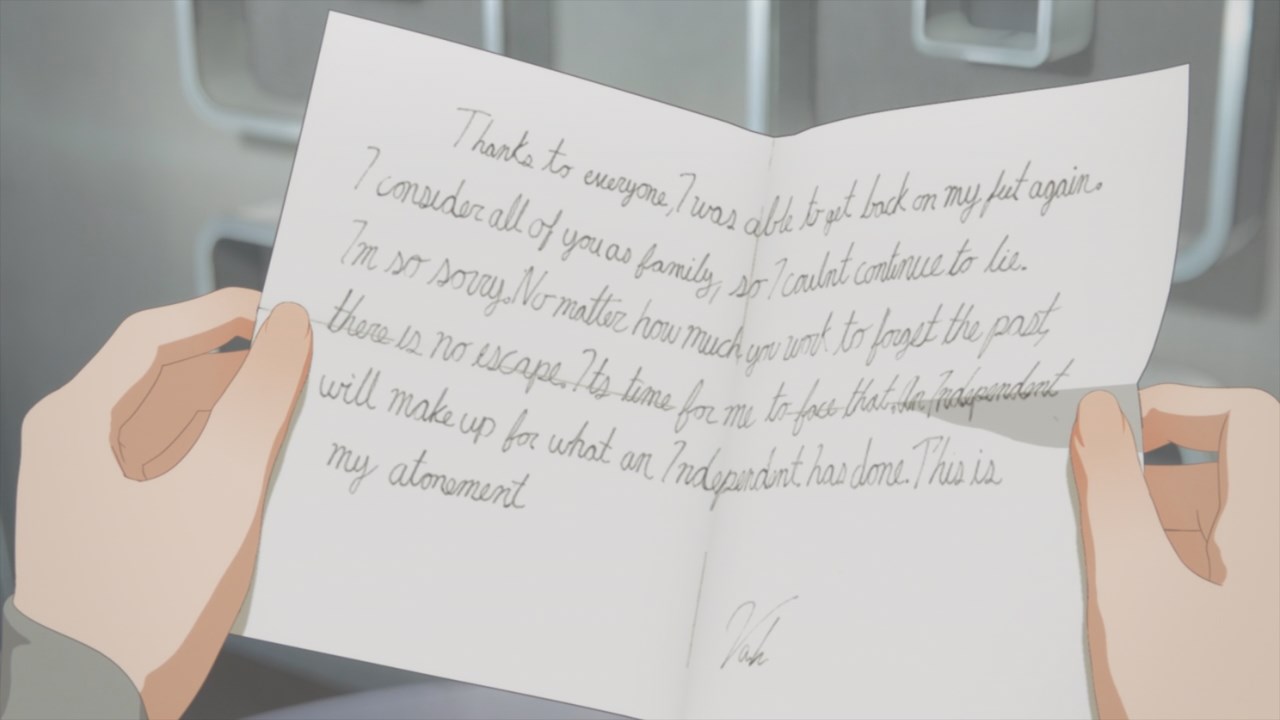 Thanks to everyone, I was able to get back on my feet again.
I consider all of you as family, so I coulnt continue to lie.
I'm so sorry. No matter how much you work to forget the past,
there is no escape. It's time for me to face that. An Independent
will make up for what an Independent has done. This is
my atonement